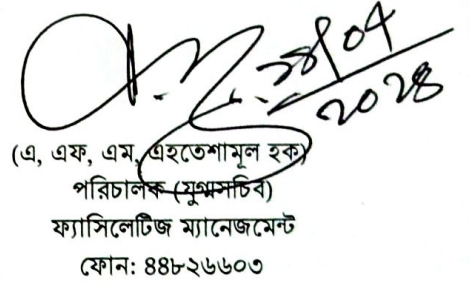 ২৮/০৫
২০২৪
(এ, এফ, এম, এহতেশামূল হক)
পরিচালক (যুগ্মসচিব)
ফ্যাসিলেটিজ ম্যানেজমেন্ট
ফোন: ৪৪৮২৬৬০৩